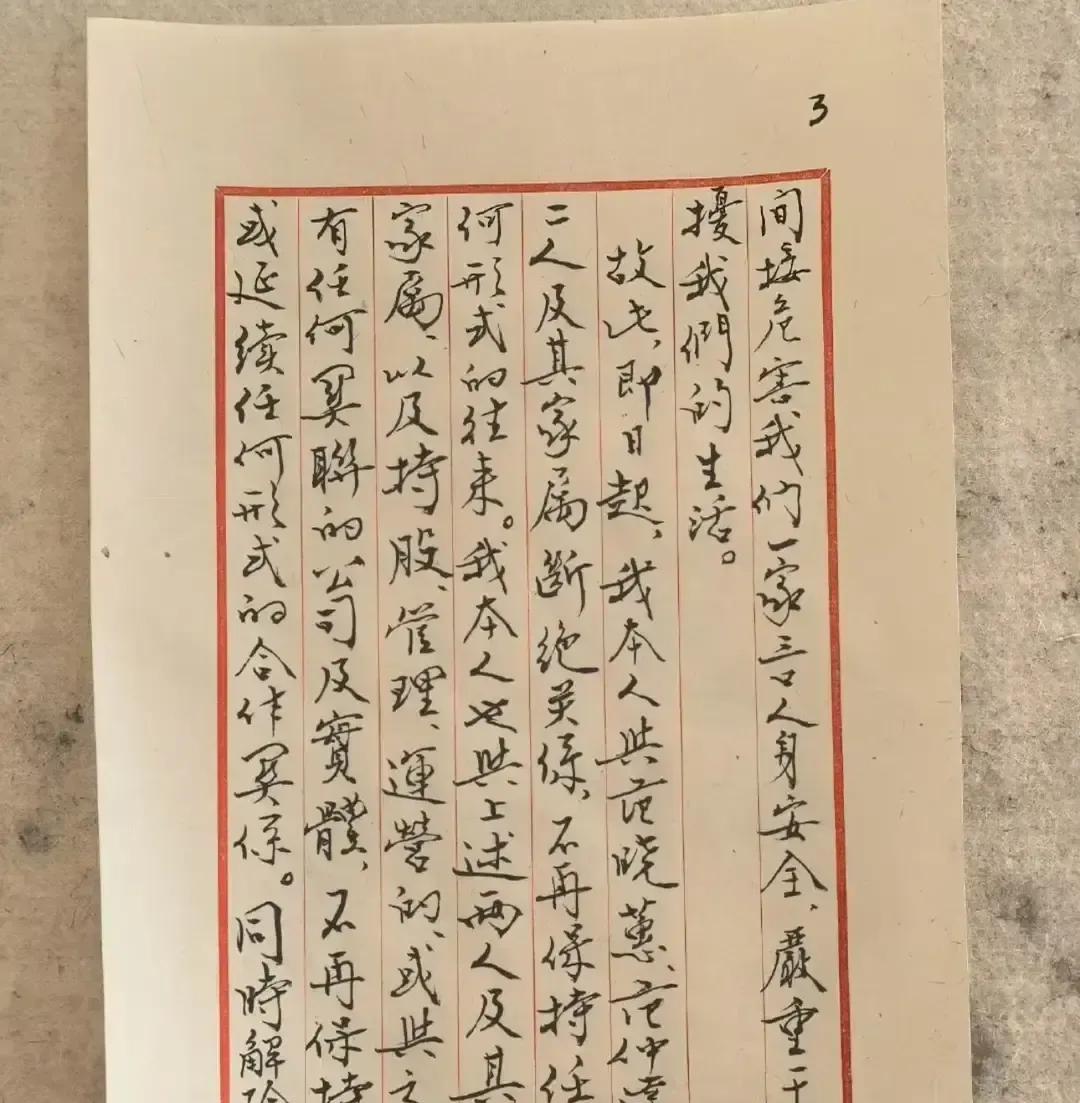 3
间接危害我们一家三口人身安全、嚴重干
擾我們的生活。
故此、即日起、我本人與范晓蕙、范仲
二人及其家属斷绝关係、不再保持任
何形式的往来。我本人也與上述两人及其
家属、以及持股、管理、運營的、或與之
有任何関聯的公司及實體、不再保持
或延续任何形式的合作関係。同時解除